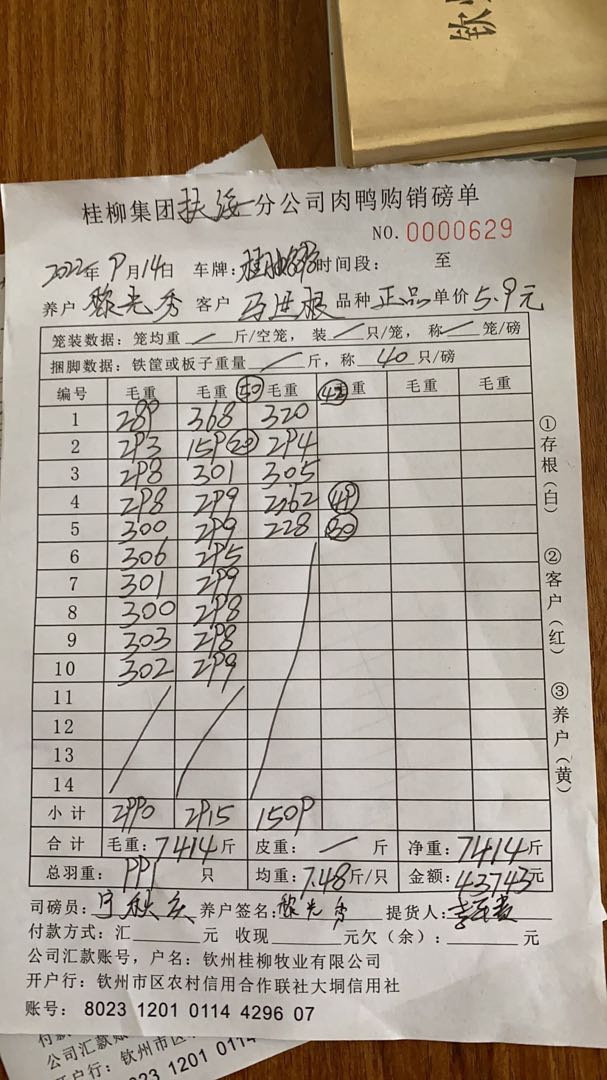 钦
桂柳集团扶绥分公司肉鸭购销磅单
NO. 0000629
2022年9月14日 车牌: 时间段: 至
养户 黎光秀 客户 马进根 品种 正品 单价 5.9元
笼装数据: 笼均重 / 斤/空笼, 装 / 只/笼, 称 / 笼/磅
捆脚数据: 铁筐或板子重量 / 斤, 称 40 只/磅
编号 毛重 毛重 50 毛重 42 毛重 毛重 毛重
1 289 368 320
2 293 159 20 294
3 298 301 305
4 298 299 362 49
5 300 299 228 30
6 306 295
7 301 299
8 300 298
9 303 298
10 302 299
11
12
13
14
小计 2990 2915 1509
合计 毛重: 7414斤 皮重: / 斤 净重: 7414斤
总羽重: 991 只 均重: 7.48斤/只 金额: 43743元
司磅员: 养户签名: 黎光秀 提货人:
付款方式: 汇 元 收现 元欠(余): 元
公司汇款账号, 户名: 钦州桂柳牧业有限公司
开户行: 钦州市区农村信用合作联社大垌信用社
账号: 8023 1201 0114 4296 07
①存根(白)
②客户(红)
③养户(黄)
付款
公司汇款账
开户行: 钦州市区
8023 1201 0114